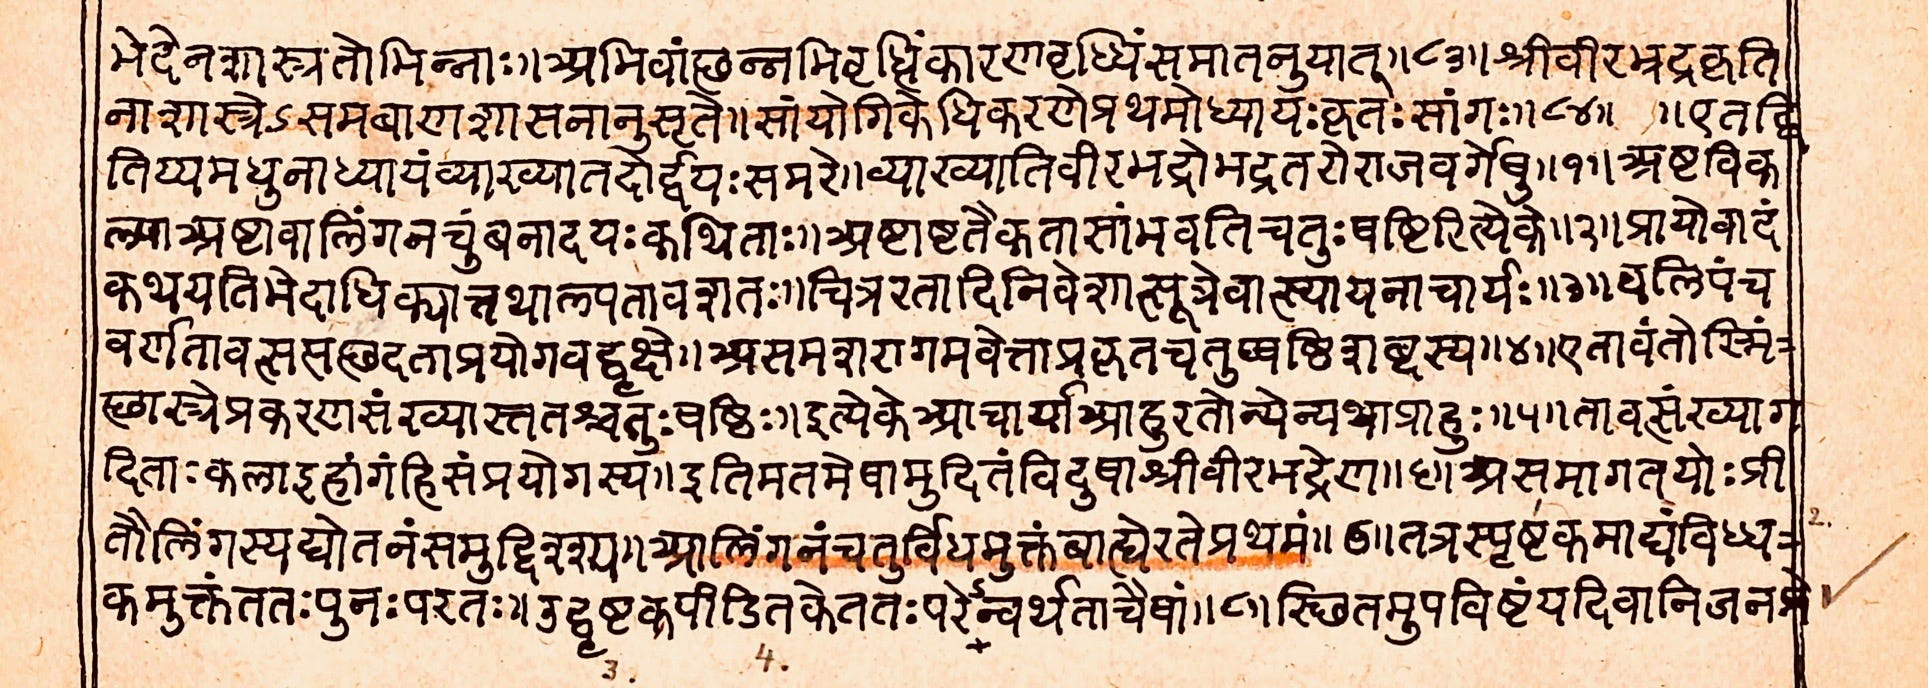 भेदेनशास्त्रतोभिन्नाः॥अभिवांछन्नभिवृध्धिंकारणवृध्धिंसमातनुयात्॥८३॥श्रीवीरभद्रकृति
नाशास्त्रेऽसमबाणशासनानुसृते॥सांयोगिकेधिकरणेप्रथमोध्यायःकृतःसांगः॥८४॥ ॥एतद्द्वि
तिय्यमधुनाध्यायंव्याख्यातदोर्द्वयःसमरे॥व्याख्यातिवीरभद्रोभद्रतरोराजवर्गेषु॥१॥अष्टविक
ल्पाअष्टावालिंगनचुंबनादयःकथिताः॥अष्टाष्टतैकतासांभवतिचतुःषष्टिरित्येके॥२॥प्रायोवादं
कथयतिभेदाधिक्यात्तथाल्पतावशतः॥चित्ररतादिनिवेशात्सूत्रेवात्स्यायनाचार्यः॥३॥बलिपंच
वर्णतावत्ससछदताप्रयोगवद्वृक्षे॥असमशरागमवेत्ताप्रकृतचतुष्षष्ठिशब्दस्य॥४॥एतावंतोस्मिं
छास्त्रेप्रकरणसंख्यास्ततश्चतुःषष्ठिः॥इत्येकेआचार्याआहुरतोन्येन्यथाप्राहुः॥५॥तावत्संख्याग
दिताःकलाइहांगंहिसंप्रयोगस्य॥इतिमतमेषामुदितंविदुषाश्रीवीरभद्रेण॥६॥असमागतयोःप्री
तौलिंगस्यद्योतनंसमुद्दिश्य॥आलिंगनंचतुर्विधमुक्तंबाह्येरतेप्रथमं॥७॥तत्रस्पृष्टकमाद्यंविध्ध 2.
कमुक्तंततःपुनःपरतः॥उद्घृष्टकपीडितकेततःपरेन्वर्थताचैषां॥८॥स्छितमुपविष्टंयदिवानिजनप्रे
3. 4.